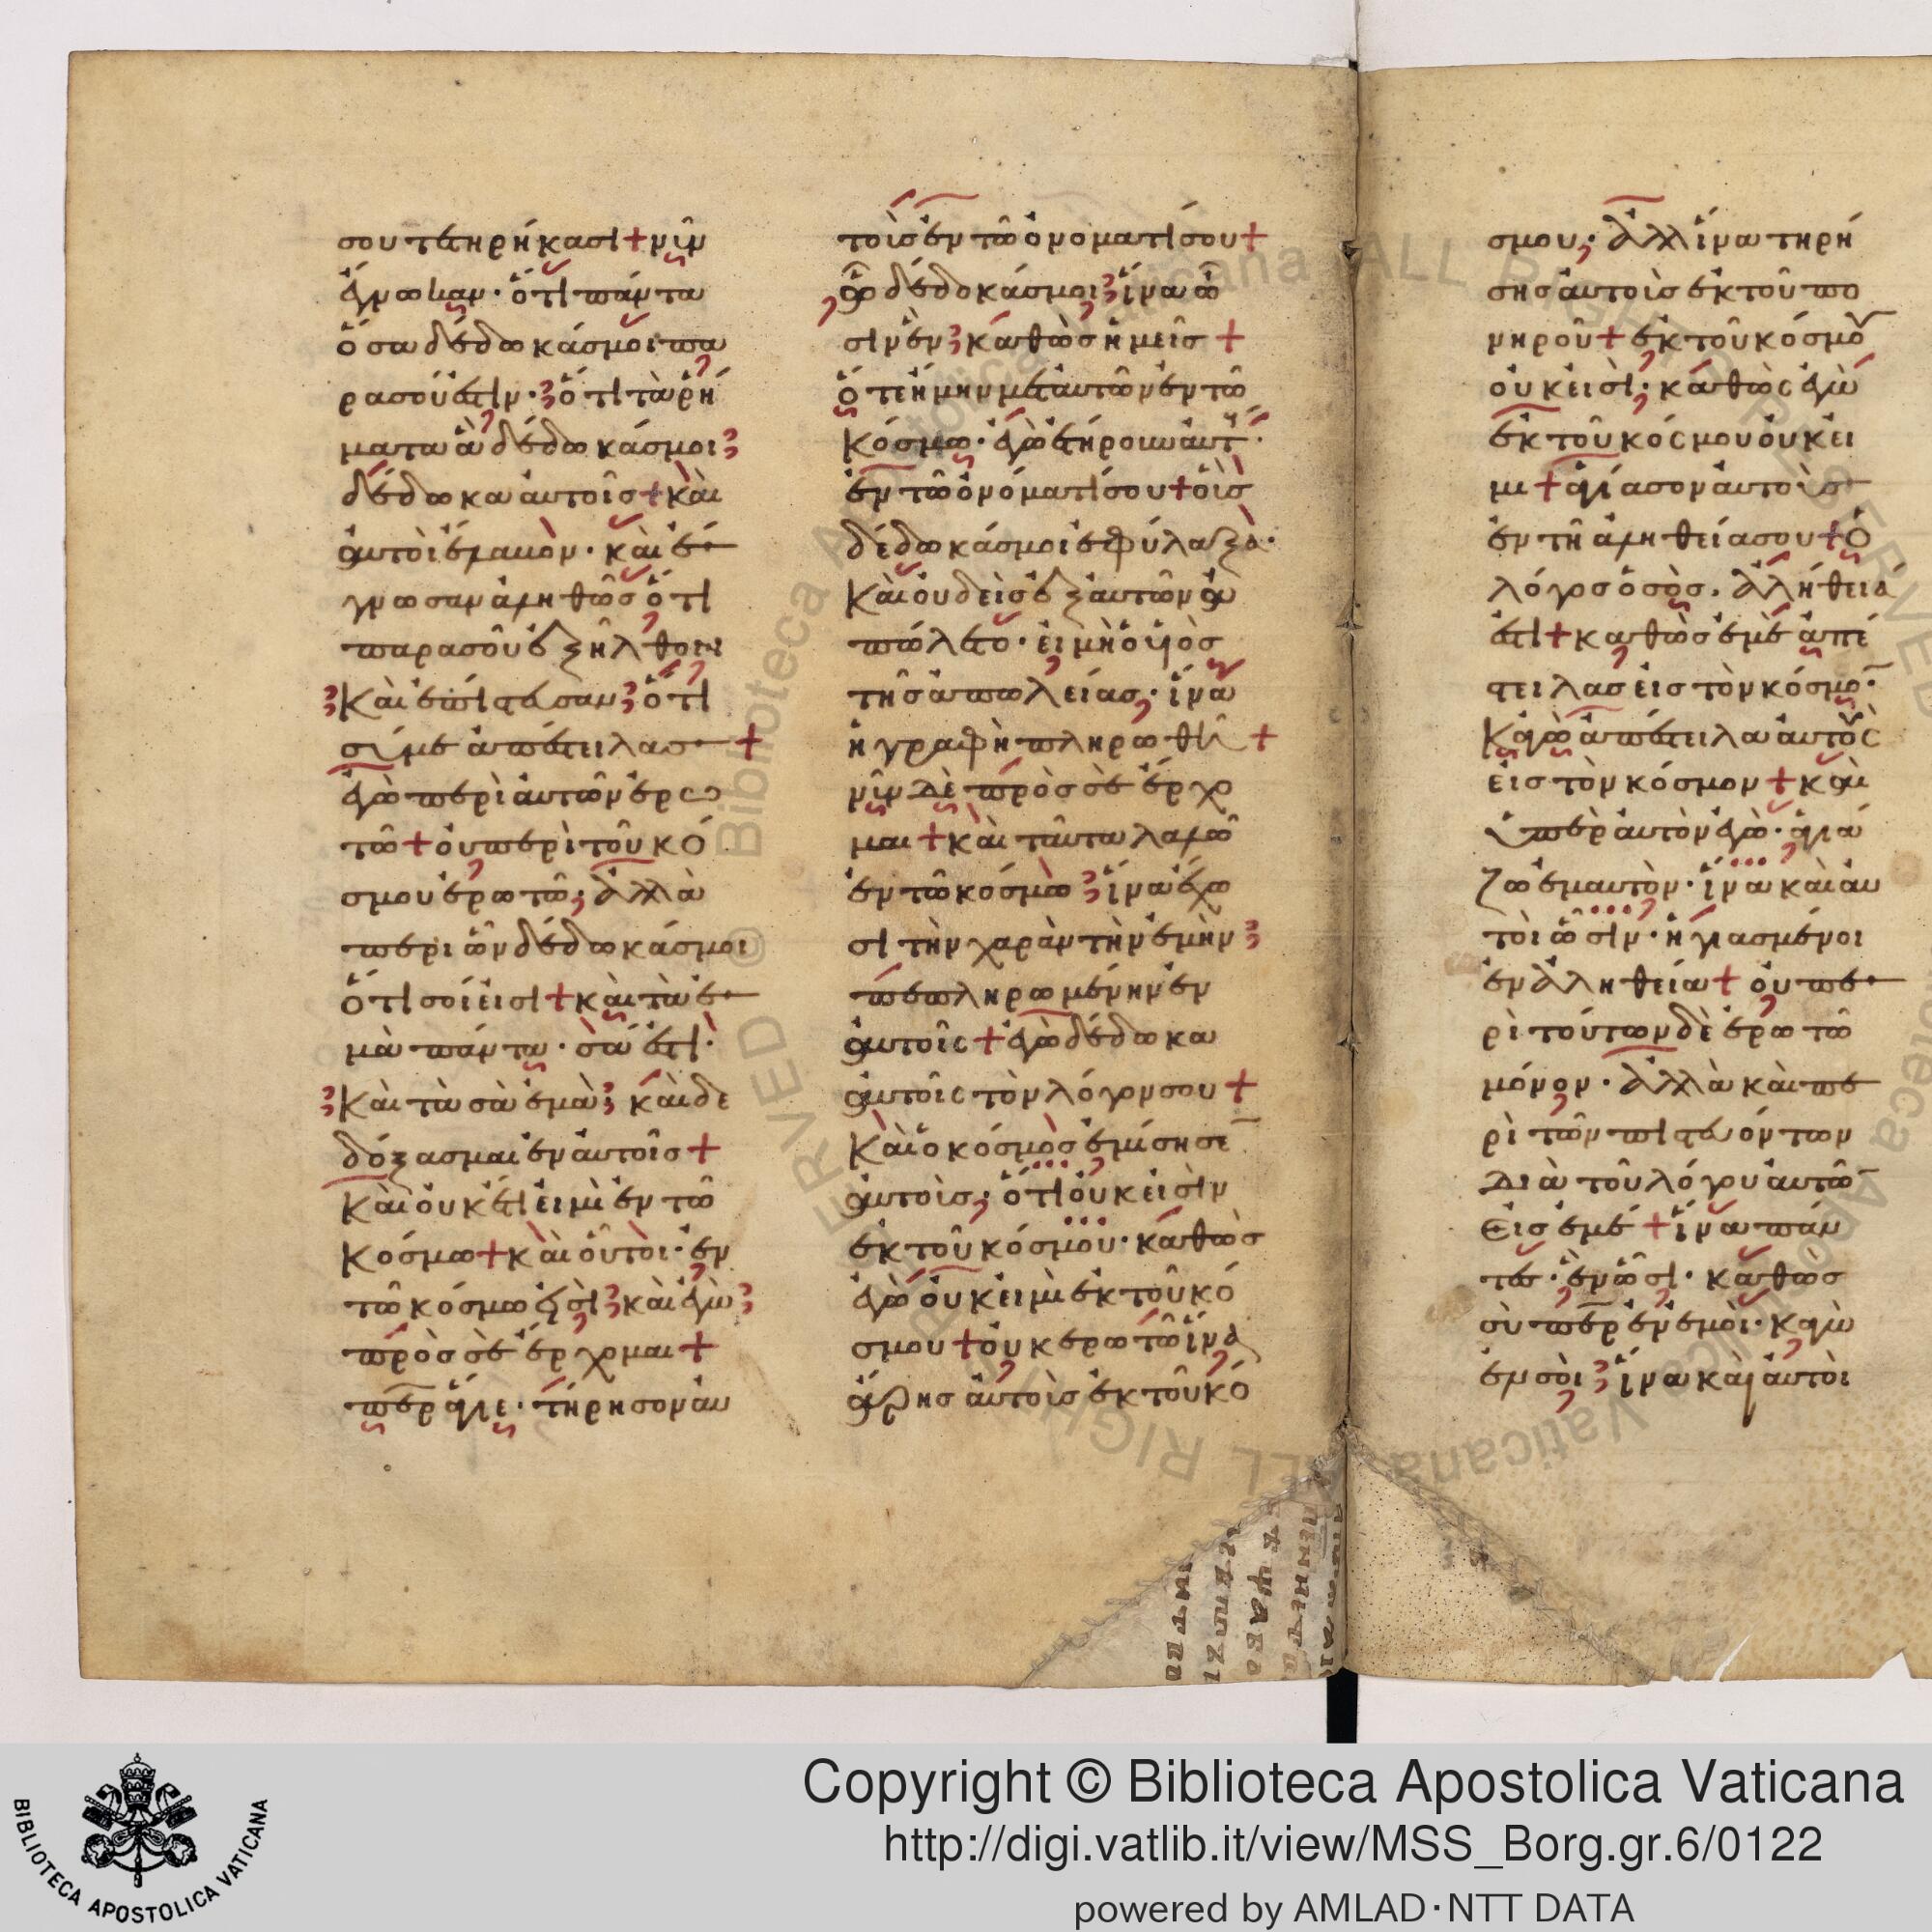 σου τετηρήκασι + νῦν
ἔγνωκαν · ὅτι πάντα
ὅσα δέδωκάς μοι πα
ρὰ σοῦ ἐστιν · ὅτι τὰ ῥή
ματα ἃ δέδωκάς μοι
δέδωκα αὐτοῖς + καὶ
αὐτοὶ ἔλαβον · καὶ ἔ
γνωσαν ἀληθῶς ὅτι
παρὰ σοῦ ἐξῆλθον
Καὶ ἐπίστευσαν ὅτι
σύ με ἀπέστειλας +
ἐγὼ περὶ αὐτῶν ἐρω
τῶ + οὐ περὶ τοῦ κό
σμου ἐρωτῶ, ἀλλὰ
περι ὧν δέδωκάς μοι
ὅτι σοί εἰσι + καὶ τὰ ἐ
μὰ πάντα · σά ἐστι ·
Καὶ τὰ σὰ ἐμὰ καὶ δε
δόξασμαι ἐν αὐτοῖς +
Καὶ οὐκέτι εἰμὶ ἐν τῶ
Κόσμω + καὶ οὗτοι · ἐν
τῶ κόσμω εἰσὶ καὶ ἐγὼ
πρὸς σὲ ἔρχομαι +
περ ἅγιε · τήρησον αὐ
τοὺς ἐν τῶ ὀνοματί σου +
ὧ δέδοκάς μοι ἵνα ὦ
σιν ἓν καθὼς ἡμεῖς +
ὅτε ἤμην μετ αὐτῶν ἐν τῶ
Κόσμω · ἐγὼ ἐτήρουν αὐτ ·
ἐν τῶ ὀνόματί σου + οὓς
δέδωκάς μοι ἐφύλαξα ·
Καὶ οὐδεὶς ἐξ αὐτῶν ἀ
πώλετο · εἰ μὴ ὁ υἱὸς
τῆς ἀπωλείας · ἵνα
ἡ γραφὴ πληρωθῆ +
νῦν Δὲ πρὸς σὲ ἔρχο
μαι + καὶ ταῦτα λαλῶ
ἐν τῶ κόσμω ἵνα ἔχω
σι τὴν χαρὰν τὴν ἐμὴν
πεπληρωμένην ἐν
αὐτοῖς + ἐγὼ δέδωκα
αὐτοῖς τὸν λόγον σου +
Καὶ ὁ κόσμος ἐμίσησε
αὐτοὺς, ὅτι οὐκ εἰσὶν
ἐκ τοῦ κόσμου · καθὼς
ἐγὼ οὐκ εἰμὶ ἐκ τοῦ κό
σμου + οὐκ ερωτῶ ἵνα
ἄρης αὐτοὺς ἐκ τοῦ κό
σμου, ἀλλ ἵνα τηρή
σης αὐτοὺς ἐκ τοῦ πο
νηροῦ + ἐκ τοῦ κόσμου
οὐκ εἰσὶ, καθὼς ἐγὼ
ἐκ τοῦ κόσμου οὐκ εἰ
μι + ἁγίασον αὐτοὺς
ἐν τῆ ἀληθεία σου + Ὁ
λόγος ὁ σὸς · ἀλήθειά
ἐστι + καθὼς ἐμὲ ἀπέ
στειλας εἰς τὸν κόσμο ·
Κἀγὼ ἀπέστειλα αὐτοὺς
εἰς τὸν κόσμον + καὶ
ὑπὲρ αὐτὸν ἐγὼ · ἁγιά
ζω ἐμαυτὸν · ἵνα καὶ αὐ
τοὶ ὦσιν · ἡγιασμένοι
ἐν ἀληθεία + οὐ πε
ρὶ τούτων δὲ ἐρωτῶ
μόνον · ἀλλὰ καὶ πε
ρὶ τῶν πιστευόντων
Διὰ τοῦ λόγου αὐτῶ
Εἰς ἐμὲ + ἵνα πάν
τες · ἓν ὦσι · καθὼς
σὺ περ ἐν ἐμοὶ · κἀγὼ
ἐν σοὶ ἵνα καὶ αὐτοὶ
Copyright © Biblioteca Apostolica Vaticana
http://digi.vatlib.it/view/MSS_Borg.gr.6/0122
powered by AMLAD·NTT DATA
BIBLIOTECA APOSTOLICA VATICANA